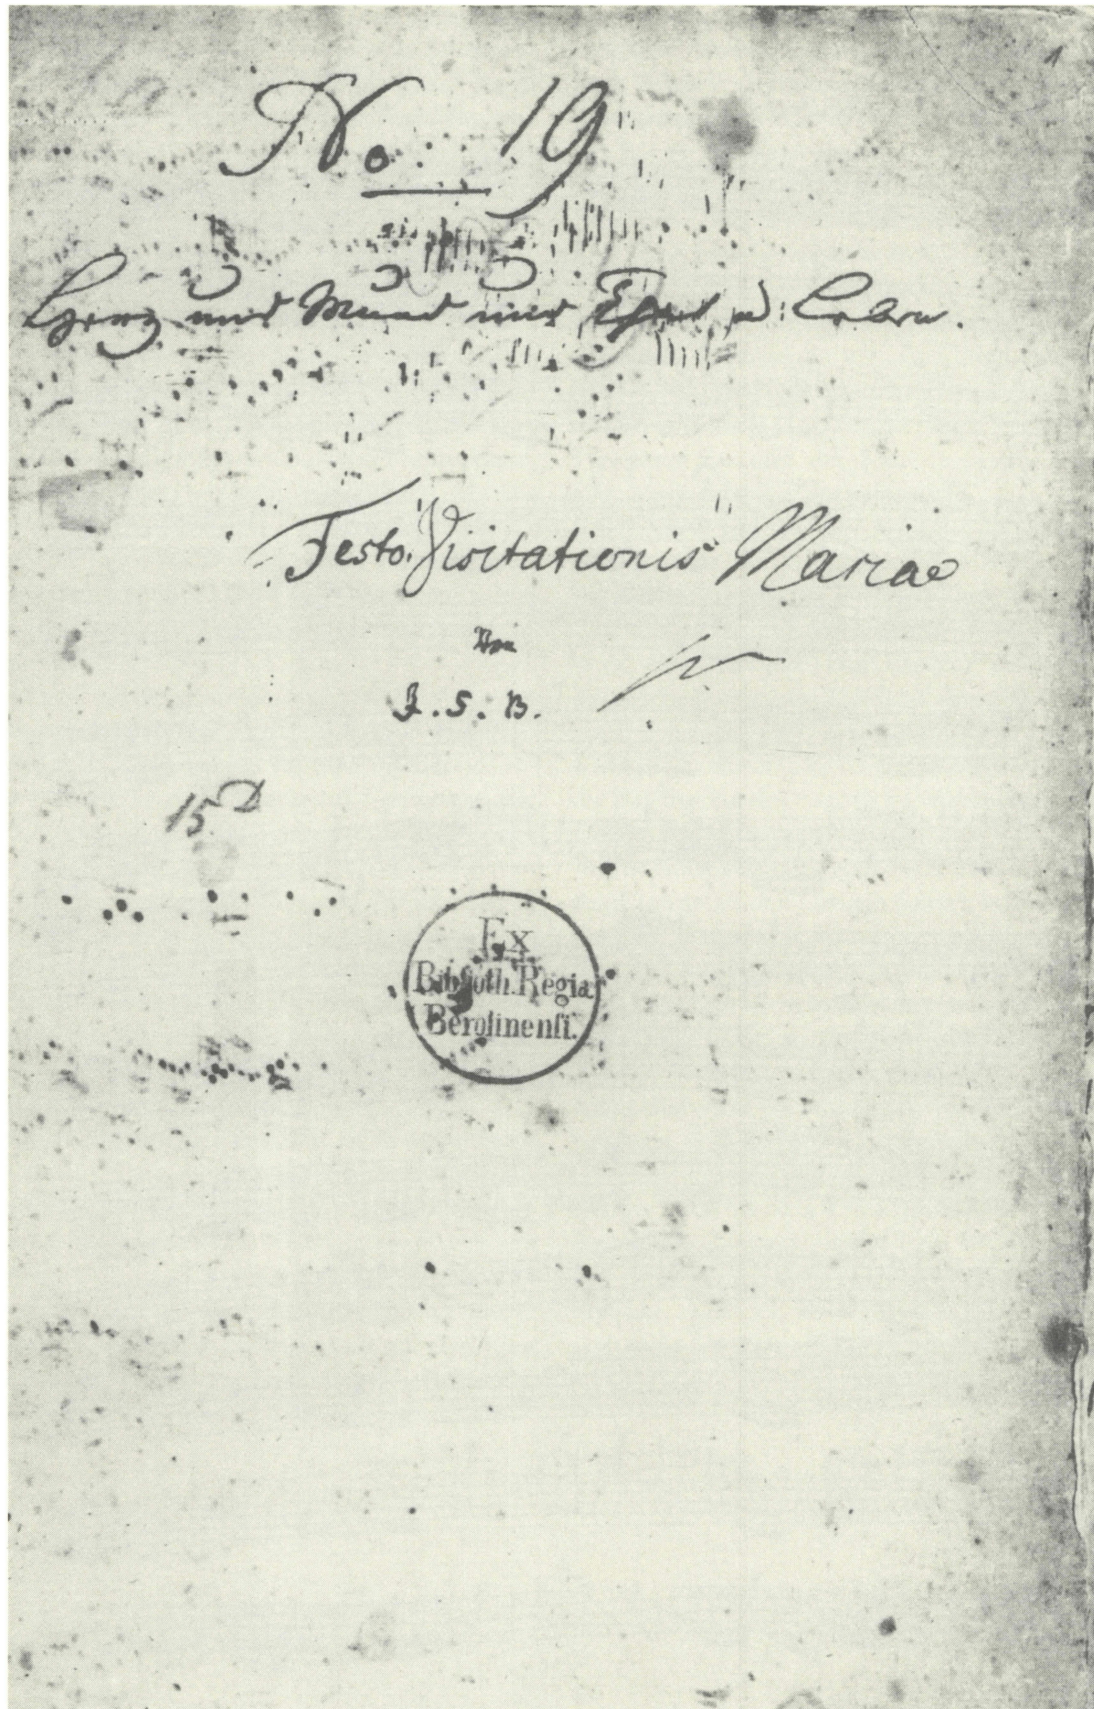 1
No. 19
Hertz und Mund und That u: Leben.
Festo. Visitationis Mariae
Von
J. S. B.
15
Ex
Biblioth. Regia
Berolinenſi.